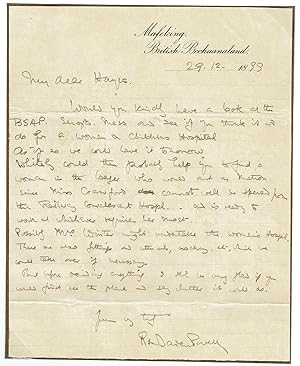 Mafeking.
British Bechuanaland.
29.12.1899
My dear Hayes
Would you kindly have a look at the
BSAP. Sergts. Mess and see if you think it wd
do for a women & childrens Hospital
As if so we could have it tomorrow
Whiteley could then probably help you to find a
woman in the laager who would act as matron
since Miss Craufurd cannot well be spared from
the Railway Convalescent Hospital. and is ready to
work at
Possibly Mrs Winter might undertake the women's Hospital
There are also fittings and utensils, crockery, etc, which we
could take over if necessary.
But before deciding anything I shd be very glad if you
would first see the place and say whether it would do.
Yours
R.S. Baden-Powell